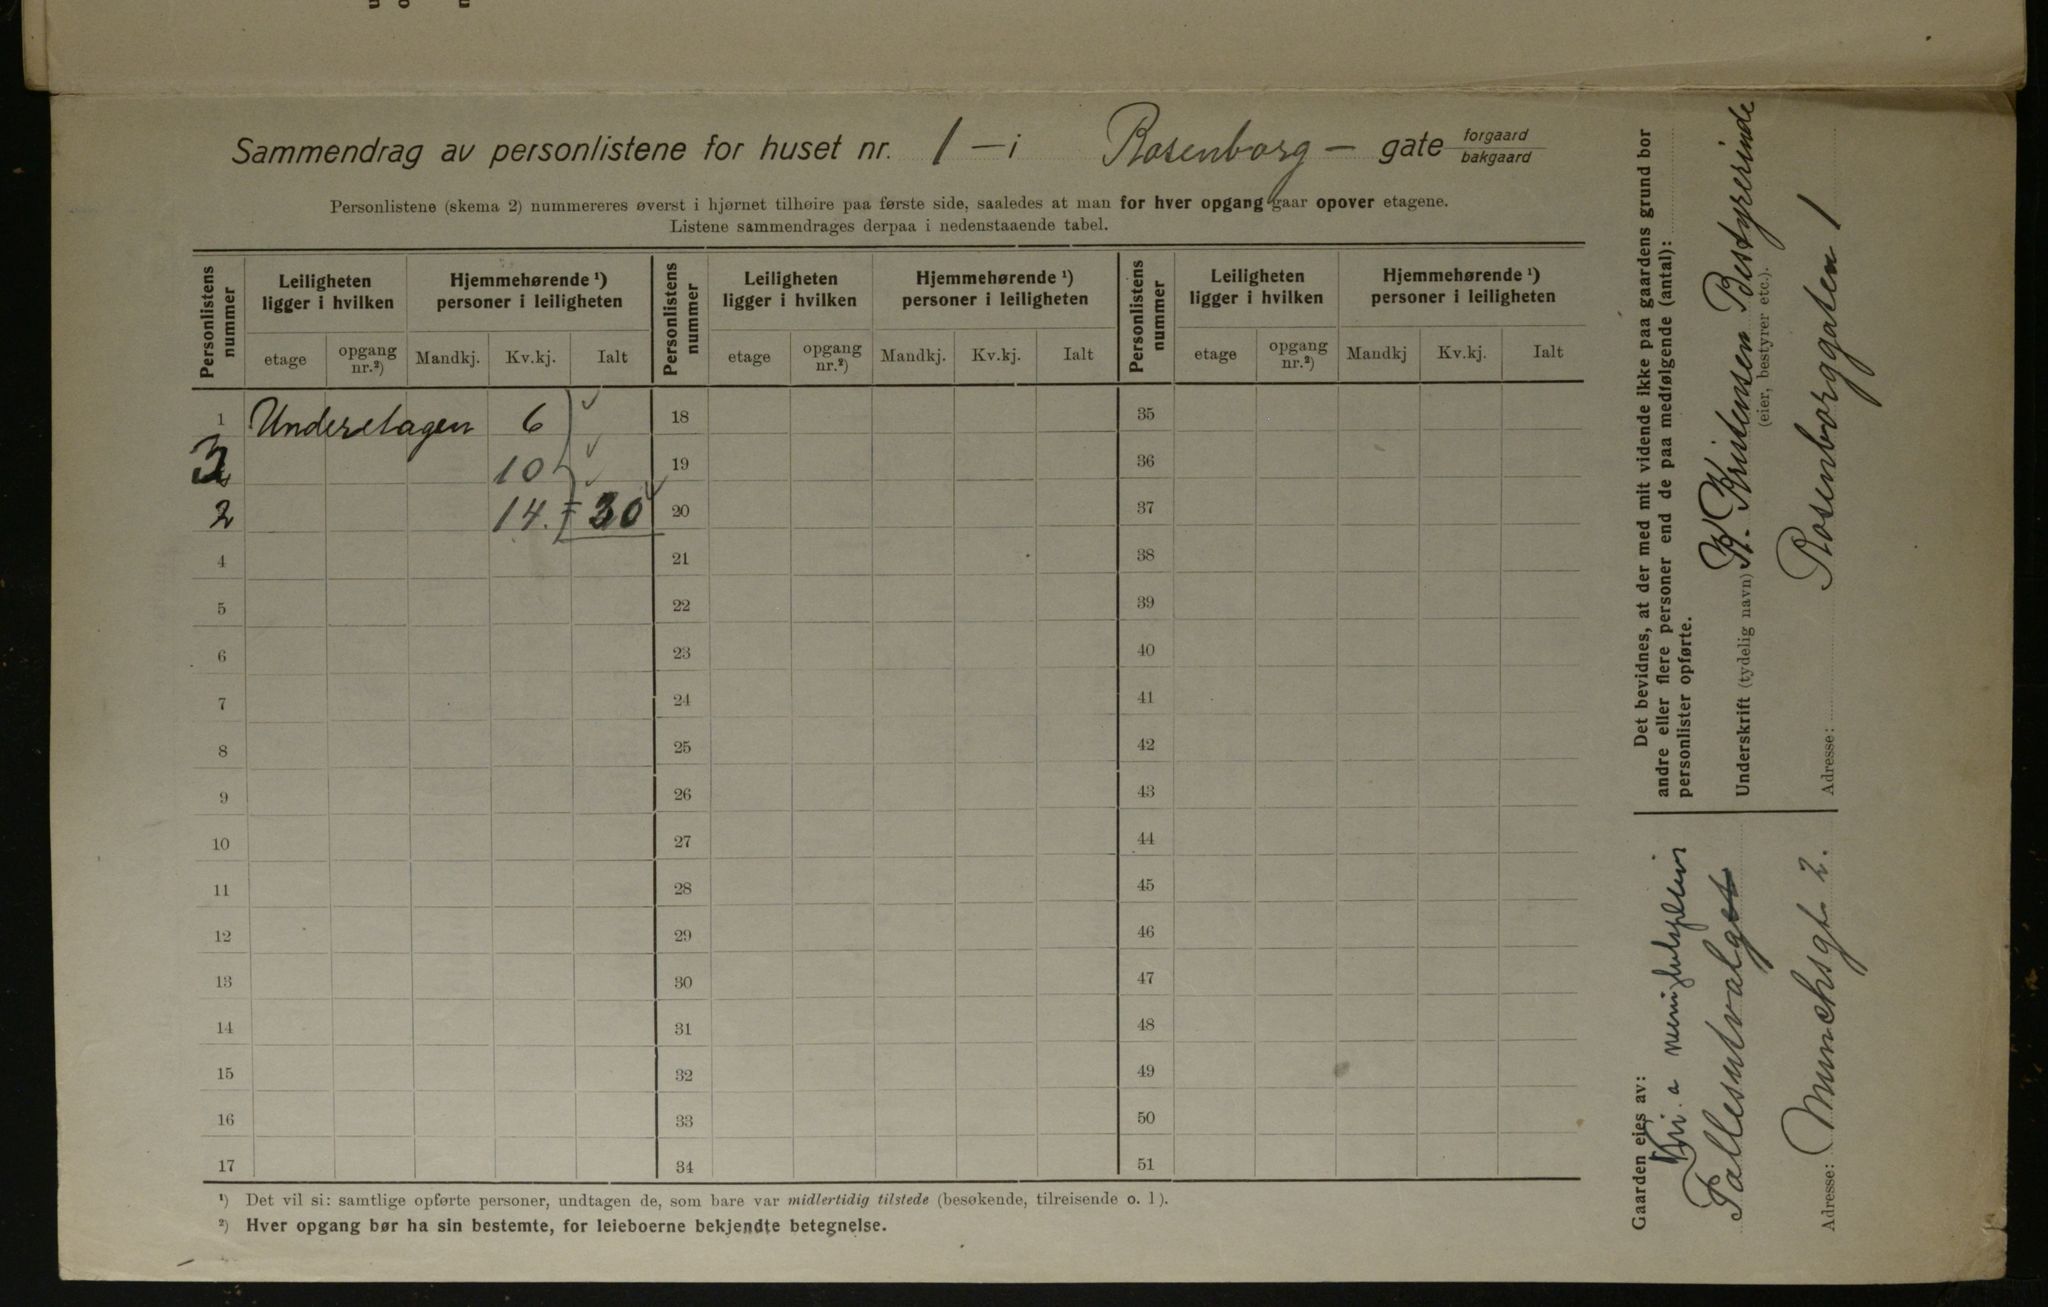 Sammendrag av personlistene for huset nr. 1 – i Rosenborg – gate forgaard bakgaard
Personlistene (skema 2) nummereres øverst i hjørnet tilhøire paa første side, saaledes at man for hver opgang gaar opover etagene.
Listene sammendrages derpaa i nedenstaaende tabel.
Personlistens nummer
Leiligheten ligger i hvilken
Hjemmehørende ¹) personer i leiligheten
Personlistens nummer
Leiligheten ligger i hvilken
Hjemmehørende ¹) personer i leiligheten
Personlistens nummer
Leiligheten ligger i hvilken
Hjemmehørende ¹) personer i leiligheten
etage opgang nr.²) Mandkj. Kv.kj. Ialt etage opgang nr.²) Mandkj. Kv.kj. Ialt etage opgang nr.²) Mandkj Kv.kj. Ialt
1 Underetagen 6 18 35
3 10 19 36
2 14. = 30 20 37
4 21 38
5 22 39
6 23 40
7 24 41
8 25 42
9 26 43
10 27 44
11 28 45
12 29 46
13 30 47
14 31 48
15 32 49
16 33 50
17 34 51
¹) Det vil si: samtlige opførte personer, undtagen de, som bare var midlertidig tilstede (besøkende, tilreisende o. l).
²) Hver opgang bør ha sin bestemte, for leieboerne bekjendte betegnelse.
Det bevidnes, at der med mit vidende ikke paa gaardens grund bor
andre eller flere personer end de paa medfølgende (antal):
personlister opførte.
Underskrift (tydelig navn) K. Kristensen Bestyrerinde
(eier, bestyrer etc.).
Adresse: Rosenborggaten 1
Gaarden eies av:
a
Fallesutvalget
Adresse: Munchsgt. 2.